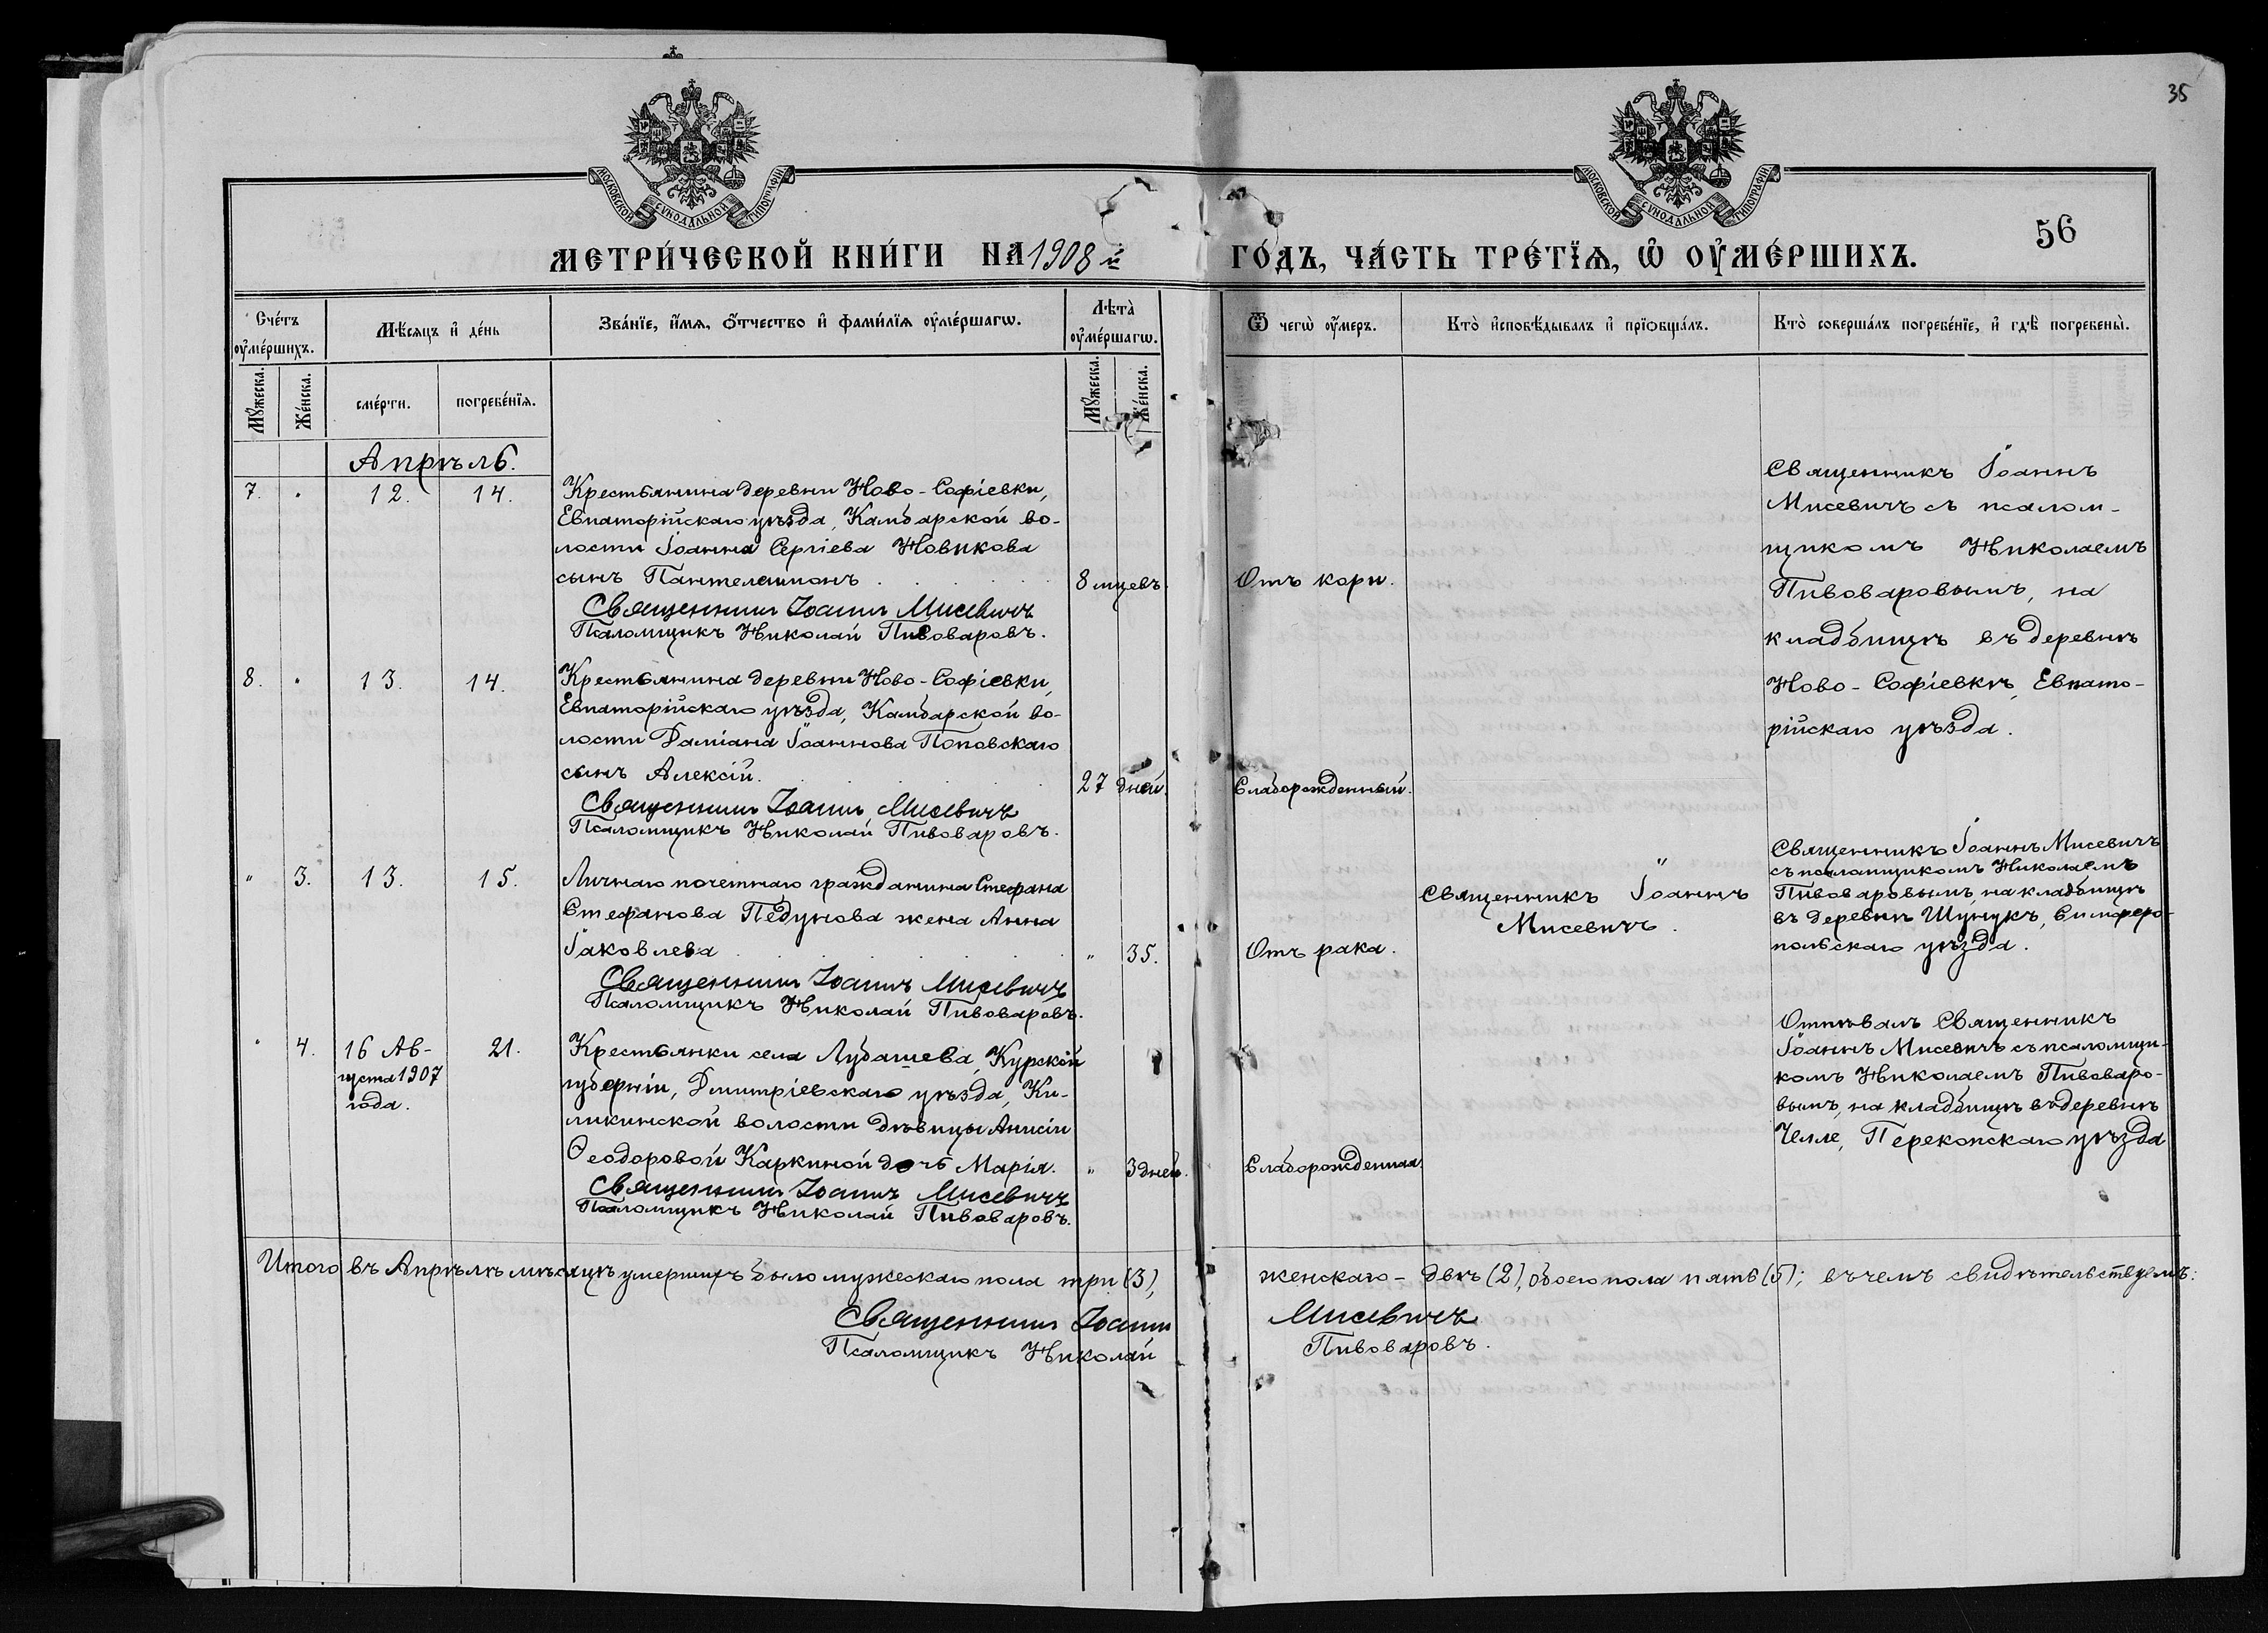 35
МОСКОВСКОЙ СѴНОДАЛЬНОЙ ТИПОГРАФІИ
МОСКОВСКОЙ СѴНОДАЛЬНОЙ ТИПОГРАФІИ
56
МЕТРИ́ЧЕСКОЙ КНИ́ГИ НА 1908 й
ГО́ДЪ, ЧА́СТЬ ТРЕ́ТЇѦ, Ѡ҆ ОУ҆МЕ́РШИХЪ.
Сче́тъ оу҆ме́ршихъ.
Мѣ́сяцъ и҆ де́нь
Зва́нїе, и҆́мѧ, ѻ҆́тчество и҆ фами́лїѧ оу҆ме́ршагѡ.
Лѣ́та оу҆ме́ршагѡ.
Ѿ чегѡ̀ оу҆́меръ.
Кто̀ и҆сповѣ́дывалъ и҆ прїѻбща́лъ.
Кто̀ соверша́лъ погребе́нїе, и҆ гдѣ̀ погребены̀.
Мꙋ́жеска.
Же́нска.
сме́рти.
погребе́нїѧ.
Мꙋ́жеска.
Же́нска.
Апрѣль.
7. 12. 14.
Крестьянина деревни Ново-Софіевки,
Евпаторійскаго уѣзда, Камбарской во-
лости Іоанна Сергіева Новикова
сынъ Пантелеимонъ . 8 мцевъ. Отъ кори.
Священникъ Іоаннъ Мисевичъ
Псаломщикъ Николай Пивоваровъ.
Священникъ Іоаннъ
Мисевичъ съ псалом-
щикомъ Николаемъ
Пивоваровымъ, на
кладбищѣ въ деревнѣ
Ново-Софіевкѣ, Евпато-
рійскаго уѣзда.
8. 13. 14.
Крестьянина деревни Ново-Софіевки,
Евпаторійскаго уѣзда, Камбарской во-
лости Даміана Іоаннова Поповскаго
сынъ Алексій. 27 дней. Слаборожденный.
Священникъ Іоаннъ Мисевичъ
Псаломщикъ Николай Пивоваровъ.
" 3. 13. 15.
Личнаго почетнаго гражданина Стефана
Стефанова Педунова жена Анна
Іаковлева . " 35. Отъ рака.
Священникъ Іоаннъ Мисевичъ
Псаломщикъ Николай Пивоваровъ.
Священникъ Іоаннъ
Мисевичъ.
Священникъ Іоаннъ Мисевичъ
съ псаломщикомъ Николаемъ
Пивоваровымъ, на кладбищѣ
въ деревнѣ Шунукъ, Симферо-
польскаго уѣзда.
" 4. 16 Ав-
густа 1907
года.
21.
Крестьянки села Лубашева, Курской
губерніи, Дмитріевскаго уѣзда, Ки-
ликинской волости дѣвицы Анисіи
Ѳеодоровой Каркиной дочь Марія. " 3 дней. Слаборожденная.
Священникъ Іоаннъ Мисевичъ
Псаломщикъ Николай Пивоваровъ.
Отпѣвалъ Священникъ
Іоаннъ Мисевичъ съ псаломщи-
комъ Николаемъ Пивоваро-
вымъ, на кладбищѣ въ деревнѣ
Челле, Перекопскаго уѣзда
Итого въ Апрѣлѣ мѣсяцѣ умершихъ было мужескаго пола три (3), женскаго - двѣ (2), обоего пола пять (5); въ чемъ свидѣтельствуемъ:
Священникъ Іоаннъ Мисевичъ
Псаломщикъ Николай Пивоваровъ.